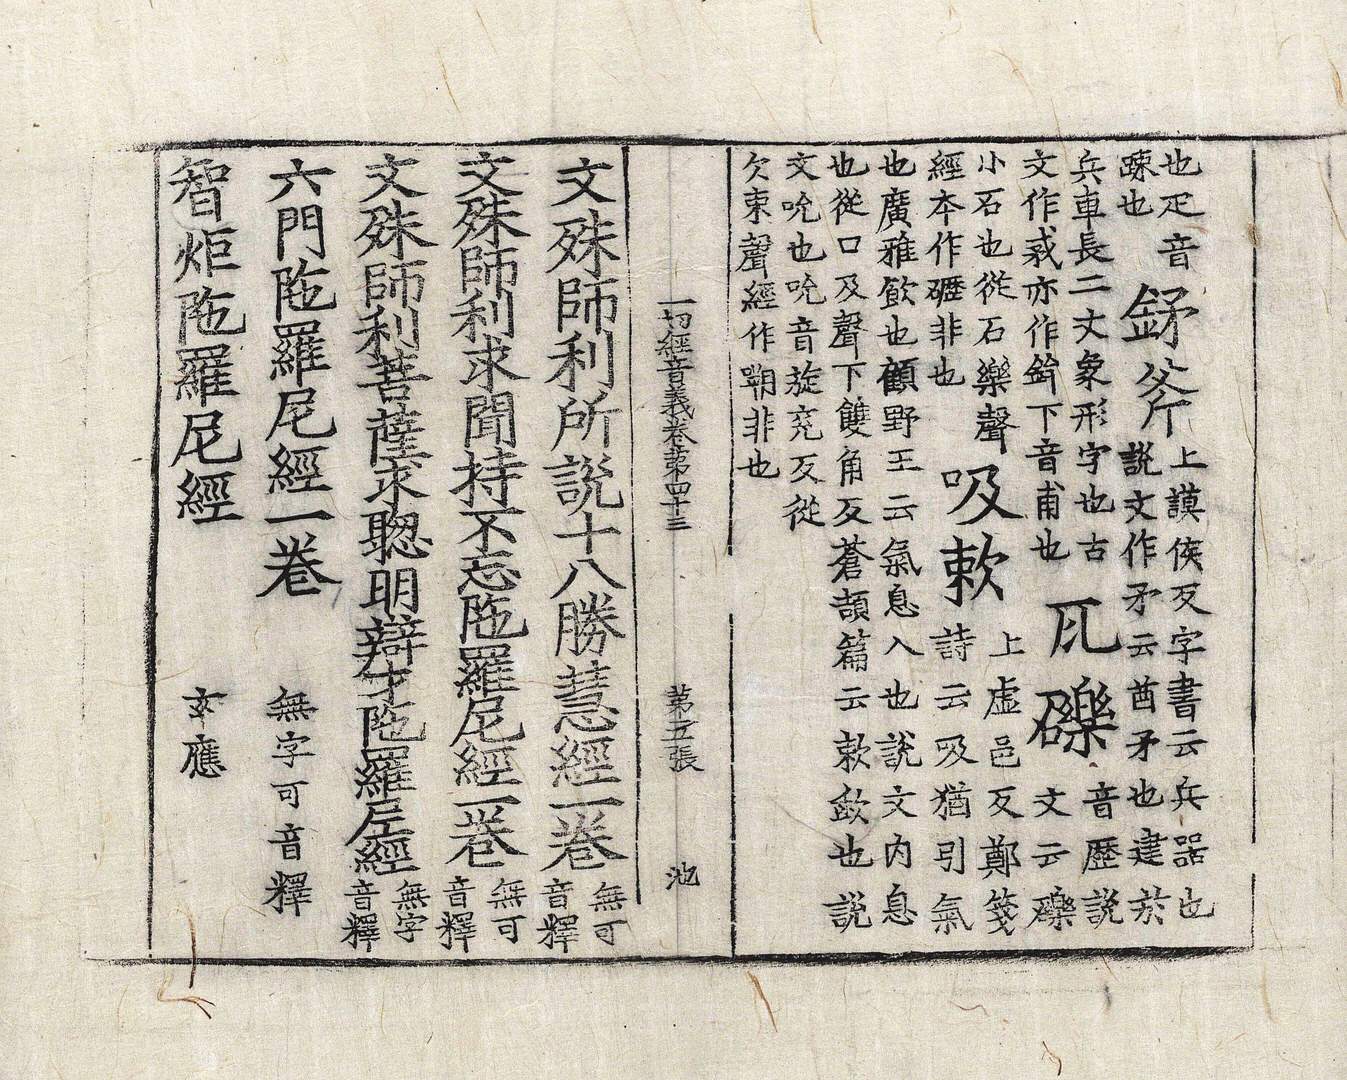 也疋音
踈也
𨥨斧
上謨侯反字書云兵器也
說文作矛云酋矛也建於
兵車長二丈象形字也古
文作𢦧亦作鉾下音甫也
瓦礫
音歷說
文云礫
小石也從石樂聲
經本作礰非也
吸欶
上虛邑反鄭箋
詩云吸猶引氣
也廣雅飲也顧野王云氣息入也說文內息
也從口及聲下雙角反蒼頡篇云欶歛也說
文吮也吮音旋兖反從
欠束聲經作嗍非也
一切經音義卷第四十三 第五張 池
文殊師利所說十八勝慧經一卷 無可音釋
文殊師利求聞持不忘陁羅尼經一卷 無可音釋
文殊師利菩薩求聦明辯才陁羅尼經 無字音釋
六門陁羅尼經一卷 無字可音釋
智炬陁羅尼經 玄應